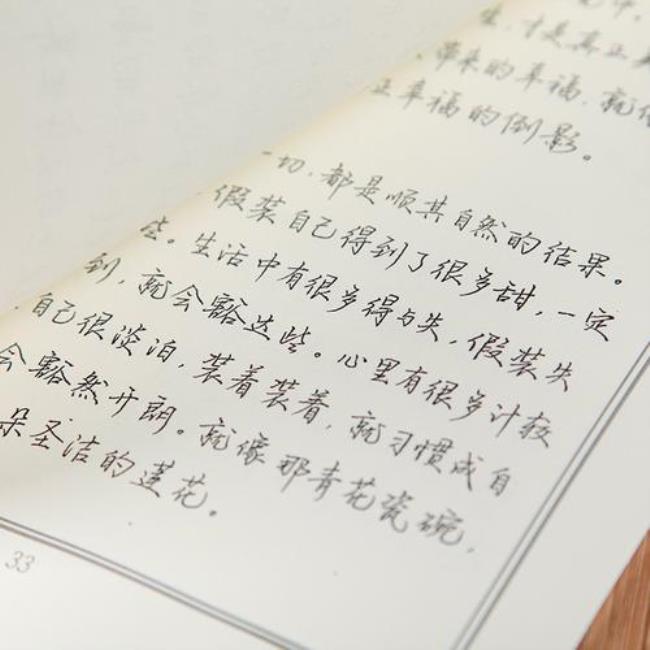 生，才是真正
带来的幸福，就像
正幸福的倒影。
一切，都是顺其自然的结果。
假装自己得到了很多甜，一定
些。生活中有很多得与失，假装失
到，就会豁达些。心里有很多计较
，自己很淡泊，装着装着，就习惯成自
会豁然开朗。就像那青花瓷碗，
朵圣洁的莲花。
33